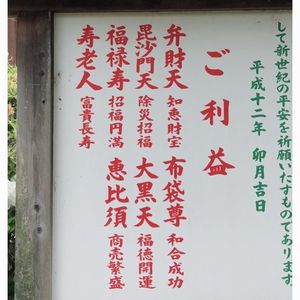 して新世紀の平安を祈願いたすものであります。
平成十二年 卯月吉日
ご利益
弁財天 知恵財宝
布袋尊 和合成功
毘沙門天 除災招福
大黒天 福徳開運
福禄寿 招福円満
恵比須 商売繁盛
寿老人 富貴長寿